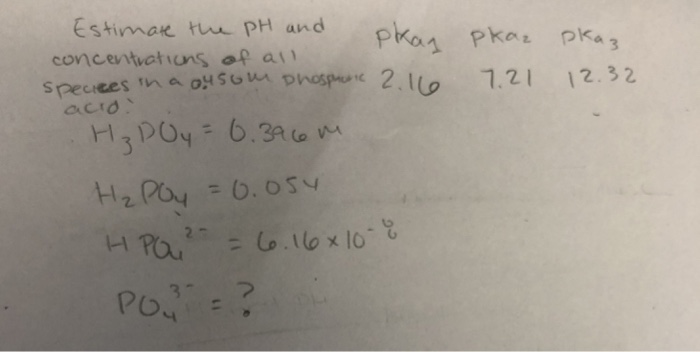 Estimate the pH and
concentrations of all
species in a 0.450M phosphoric
acid:
pKa1 pKa2 pKa3
2.16 7.21 12.32
H3PO4 = 0.396 M
H2PO4 = 0.054
HPO4 2- = 6.16 x 10^-8
PO4 3- = ?